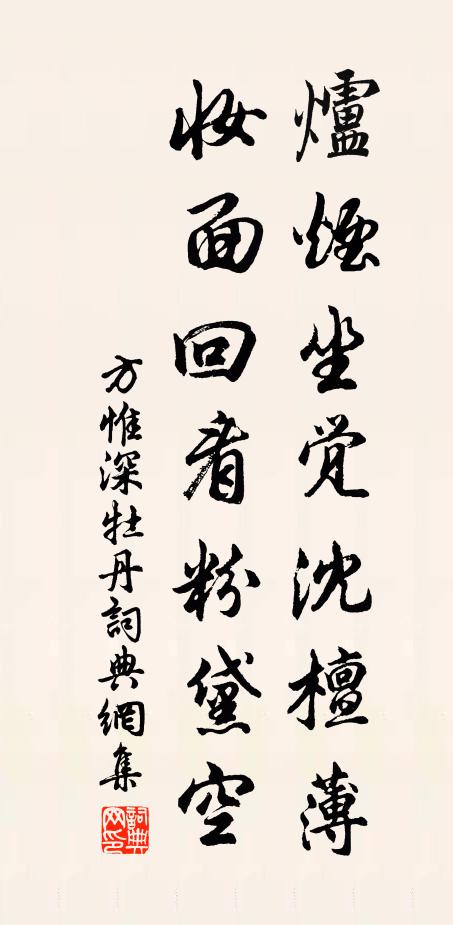 爐煙坐觉沈檀薄
妝面回看粉黛空
方惟深牡丹詞典網集
詞典網印